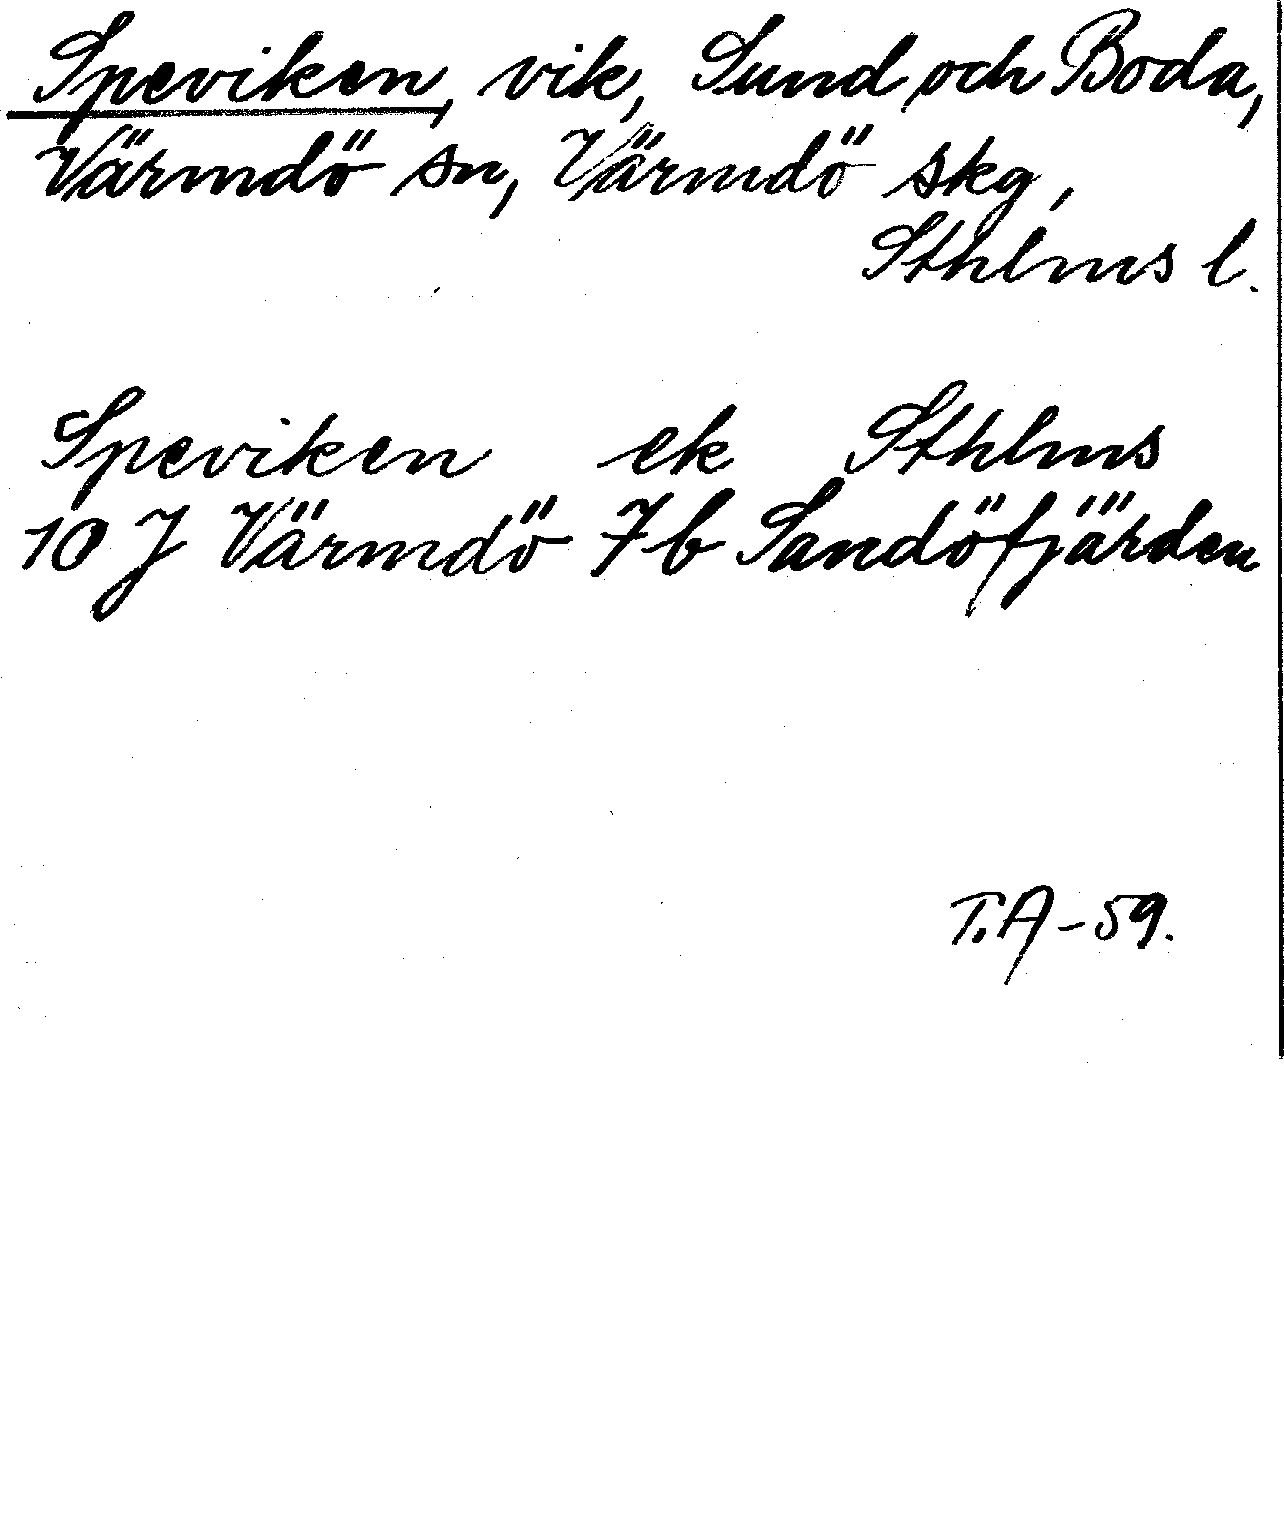 Speviken, vik, Sund och Boda,
Värmdö sn, Värmdö skg,
Sthlms l.
Speviken ek Sthlms
10 J Värmdö 7b Sandöfjärden
T.A-59.